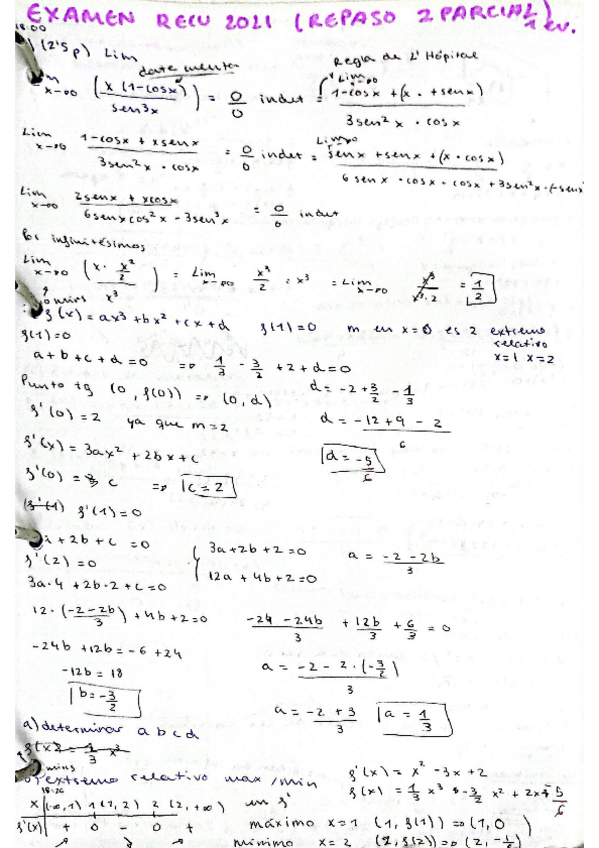 EXAMEN RECU 2021 (REPASO 2 PARCIAL) 1 EV.
18:00
) (2'5 p) Lim
datamente Regla de L'Hôpital
x→0 (x (1-cosx) / sen3x) = 0/0 indet = Lim x→0 1-cosx + (x · + senx) / 3sen²x · cosx
Lim x→0 1-cosx + xsenx / 3sen²x · cosx = 0/0 indet = Lim x→0 senx + senx + (x · cosx) / 6 senx · cosx · cosx + 3sen²x · (-senx
Lim x→0 2senx + xcosx / 6senxcos²x - 3sen³x = 0/0 indet
infinitésimos
Lim x→0 (x · x²/2) / x³ = Lim x→0 x³/2 : x³ = Lim x→0 x³ / x³·2 = 1/2
mins
f(x) = ax³ + bx² + cx + d f(1)=0 m en x=0 es 2 extremo relativo x=1 x=2
f(1)=0
a+b+c+d=0 => 1/3 - 3/2 + 2 + d = 0
Punto tg (0, f(0)) => (0, d) d = -2 + 3/2 - 1/3
f'(0) = 2 ya que m=2 d = -12+9 - 2 / 6
f'(x) = 3ax² + 2bx + c d = -5/6
f'(0) = c => c=2
f'(1) f'(1)=0
+ 2b + c = 0
f'(2) = 0 { 3a+2b+2=0 a = -2-2b / 3
3a·4 + 2b·2 + c=0 12a + 4b+2=0
12 · (-2-2b / 3) + 4b+2=0 -24 -24b / 3 + 12b/3 + 6/3 = 0
-24b +12b = -6 + 24 a = -2 - 2·(-3/2) / 3
-12b = 18
b = -3/2 a = -2 + 3 / 3 a = 1/3
a) determinar a b c d
f(x) = 1/3 x³
mins
extremo relativo max/min f'(x) = x² - 3x + 2
18:26 f(x) = 1/3 x³ - 3/2 x² + 2x - 5/6
x (-∞,1) 1 (1,2) 2 (2,+∞) en f'
f'(x) + 0 - 0 + máximo x=1 (1, f(1)) => (1,0)
mínimo x=2 (2, f(2)) => (2, -1/6)